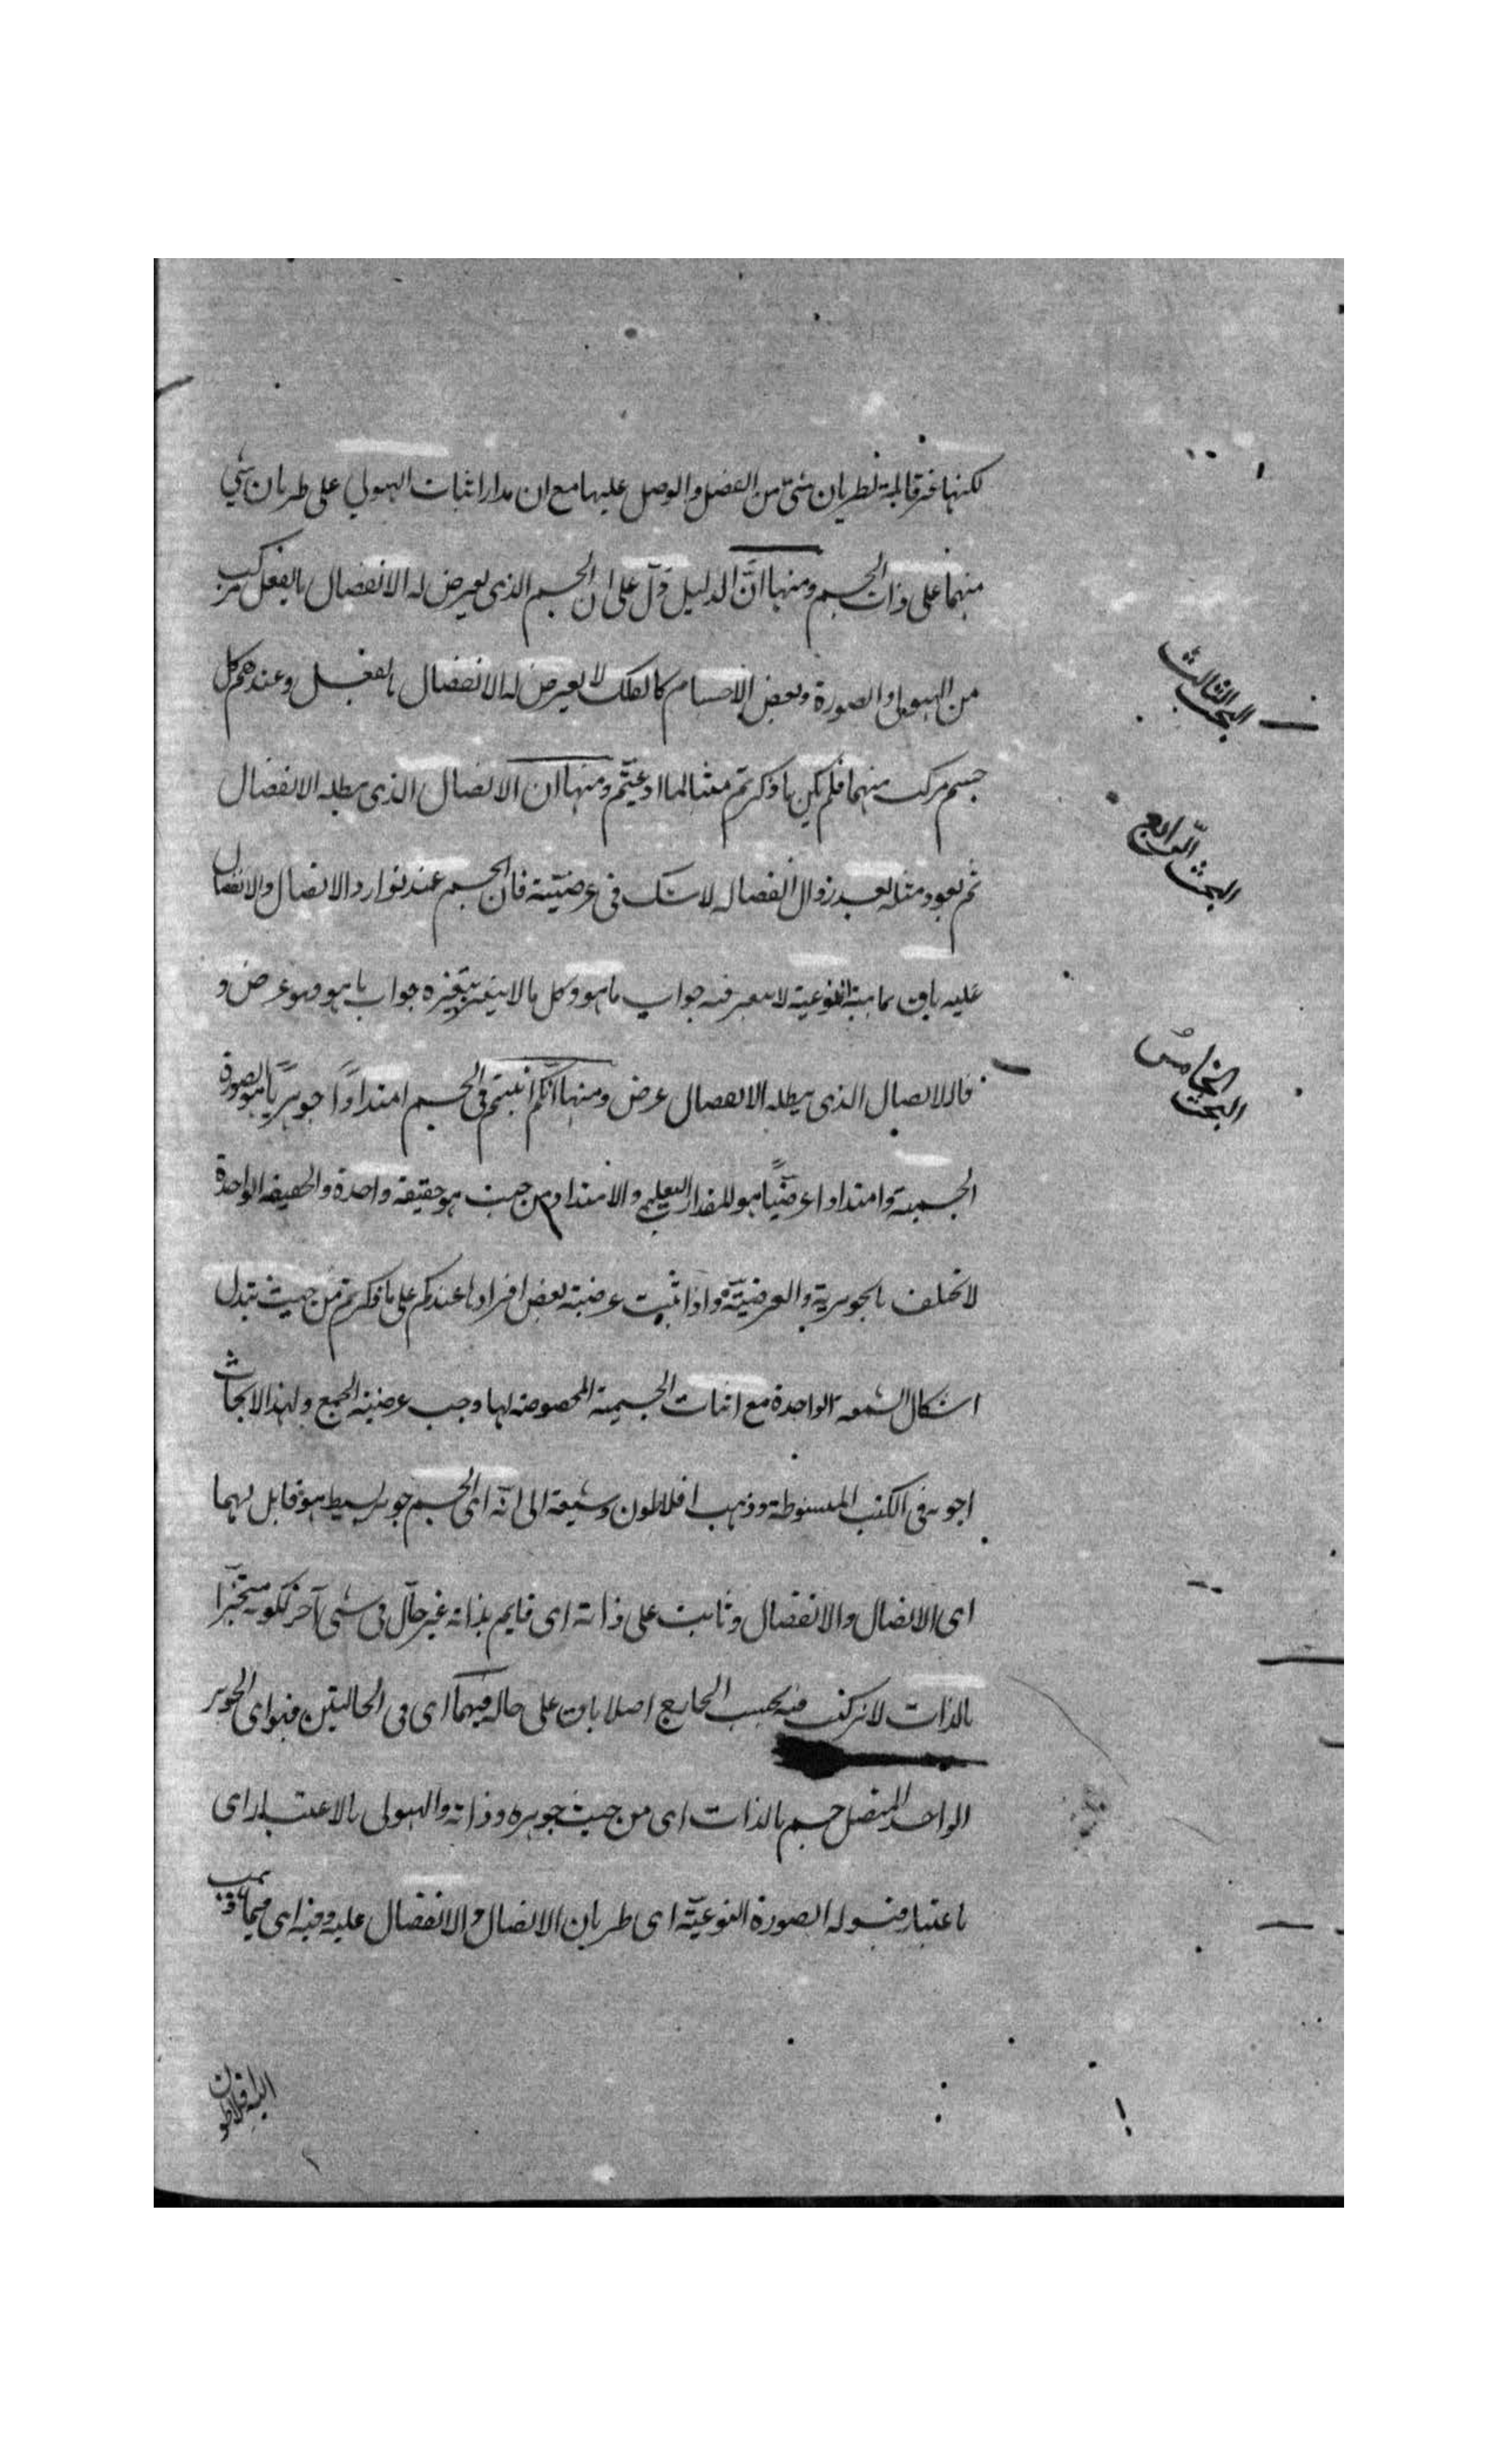 لكنها غير قابلة لطريان شئ من الفصل والوصل عليها مع ان مدار اثبات الهيولي على طريان شئ
منهما على ذات الجسم ومنها انّ الدليل دلّ على ان الجسم الذى يعرض له الانفصال بالفعل مركب
من الهيولى والصورة وبعض الاجسام كالفلك لا يعرض له الانفصال بالفعل وعندهم كل
جسم مركب منهما فلم يكن ما ذكرتم مثبتا لما ادعيتم ومنها ان الاتصال الذى يبطله الانفصال
ثم يعود مثله بعد زوال انفصاله لا شك فى عرضيته فان الجسم عند توارد الاتصال والانفصال
عليه باق بماهيته النوعية لا يتغير فيه جواب ما هو وكل ما لا يتغير بتغيره جواب ما هو فهو عرض و
فالاتصال الذى يبطله الانفصال عرض ومنها انكم اثبتم فى الجسم امتدادًا جوهريًا هو الصورة
الجسمية وامتدادا عرضيًا هو المقدار التعليمي والامتداد من حيث هو حقيقة واحدة والحقيقة الواحدة
لا تختلف بالجوهرية والعرضيّة واذا ثبت عرضية بعض افرادها عندكم على ما ذكرتم من حيث تبدل
اشكال الشمعة الواحدة مع اثبات الجسمية المخصوصة لها وجب عرضية الجميع ولهذا الابحاث
اجوبة فى الكتب المبسوطة وذهب افلاطون وشيعته الى انّه اى الجسم جوهر بسيط هو قابل لهما
اى الاتصال والانفصال وثابت على ذاته اى قايم بذاته غير حالّ فى شئ آخر لكونه متحيّزا
بالذات لا تركيب فيه بحسب الخارج اصلا باق على حاله فيهما اى فى الحالتين فهو اى الجوهر
الواحد المتصل جسم بالذات اى من حيث جوهره وذاته والهيولى بالاعتبار اى
باعتبار قبوله الصورة النوعيّة اى طريان الاتصال والانفصال عليه وفيه اى فيما ذهب
اليه افلاطون
البحث الثالث
البحث الرّابع
البحث الخامس